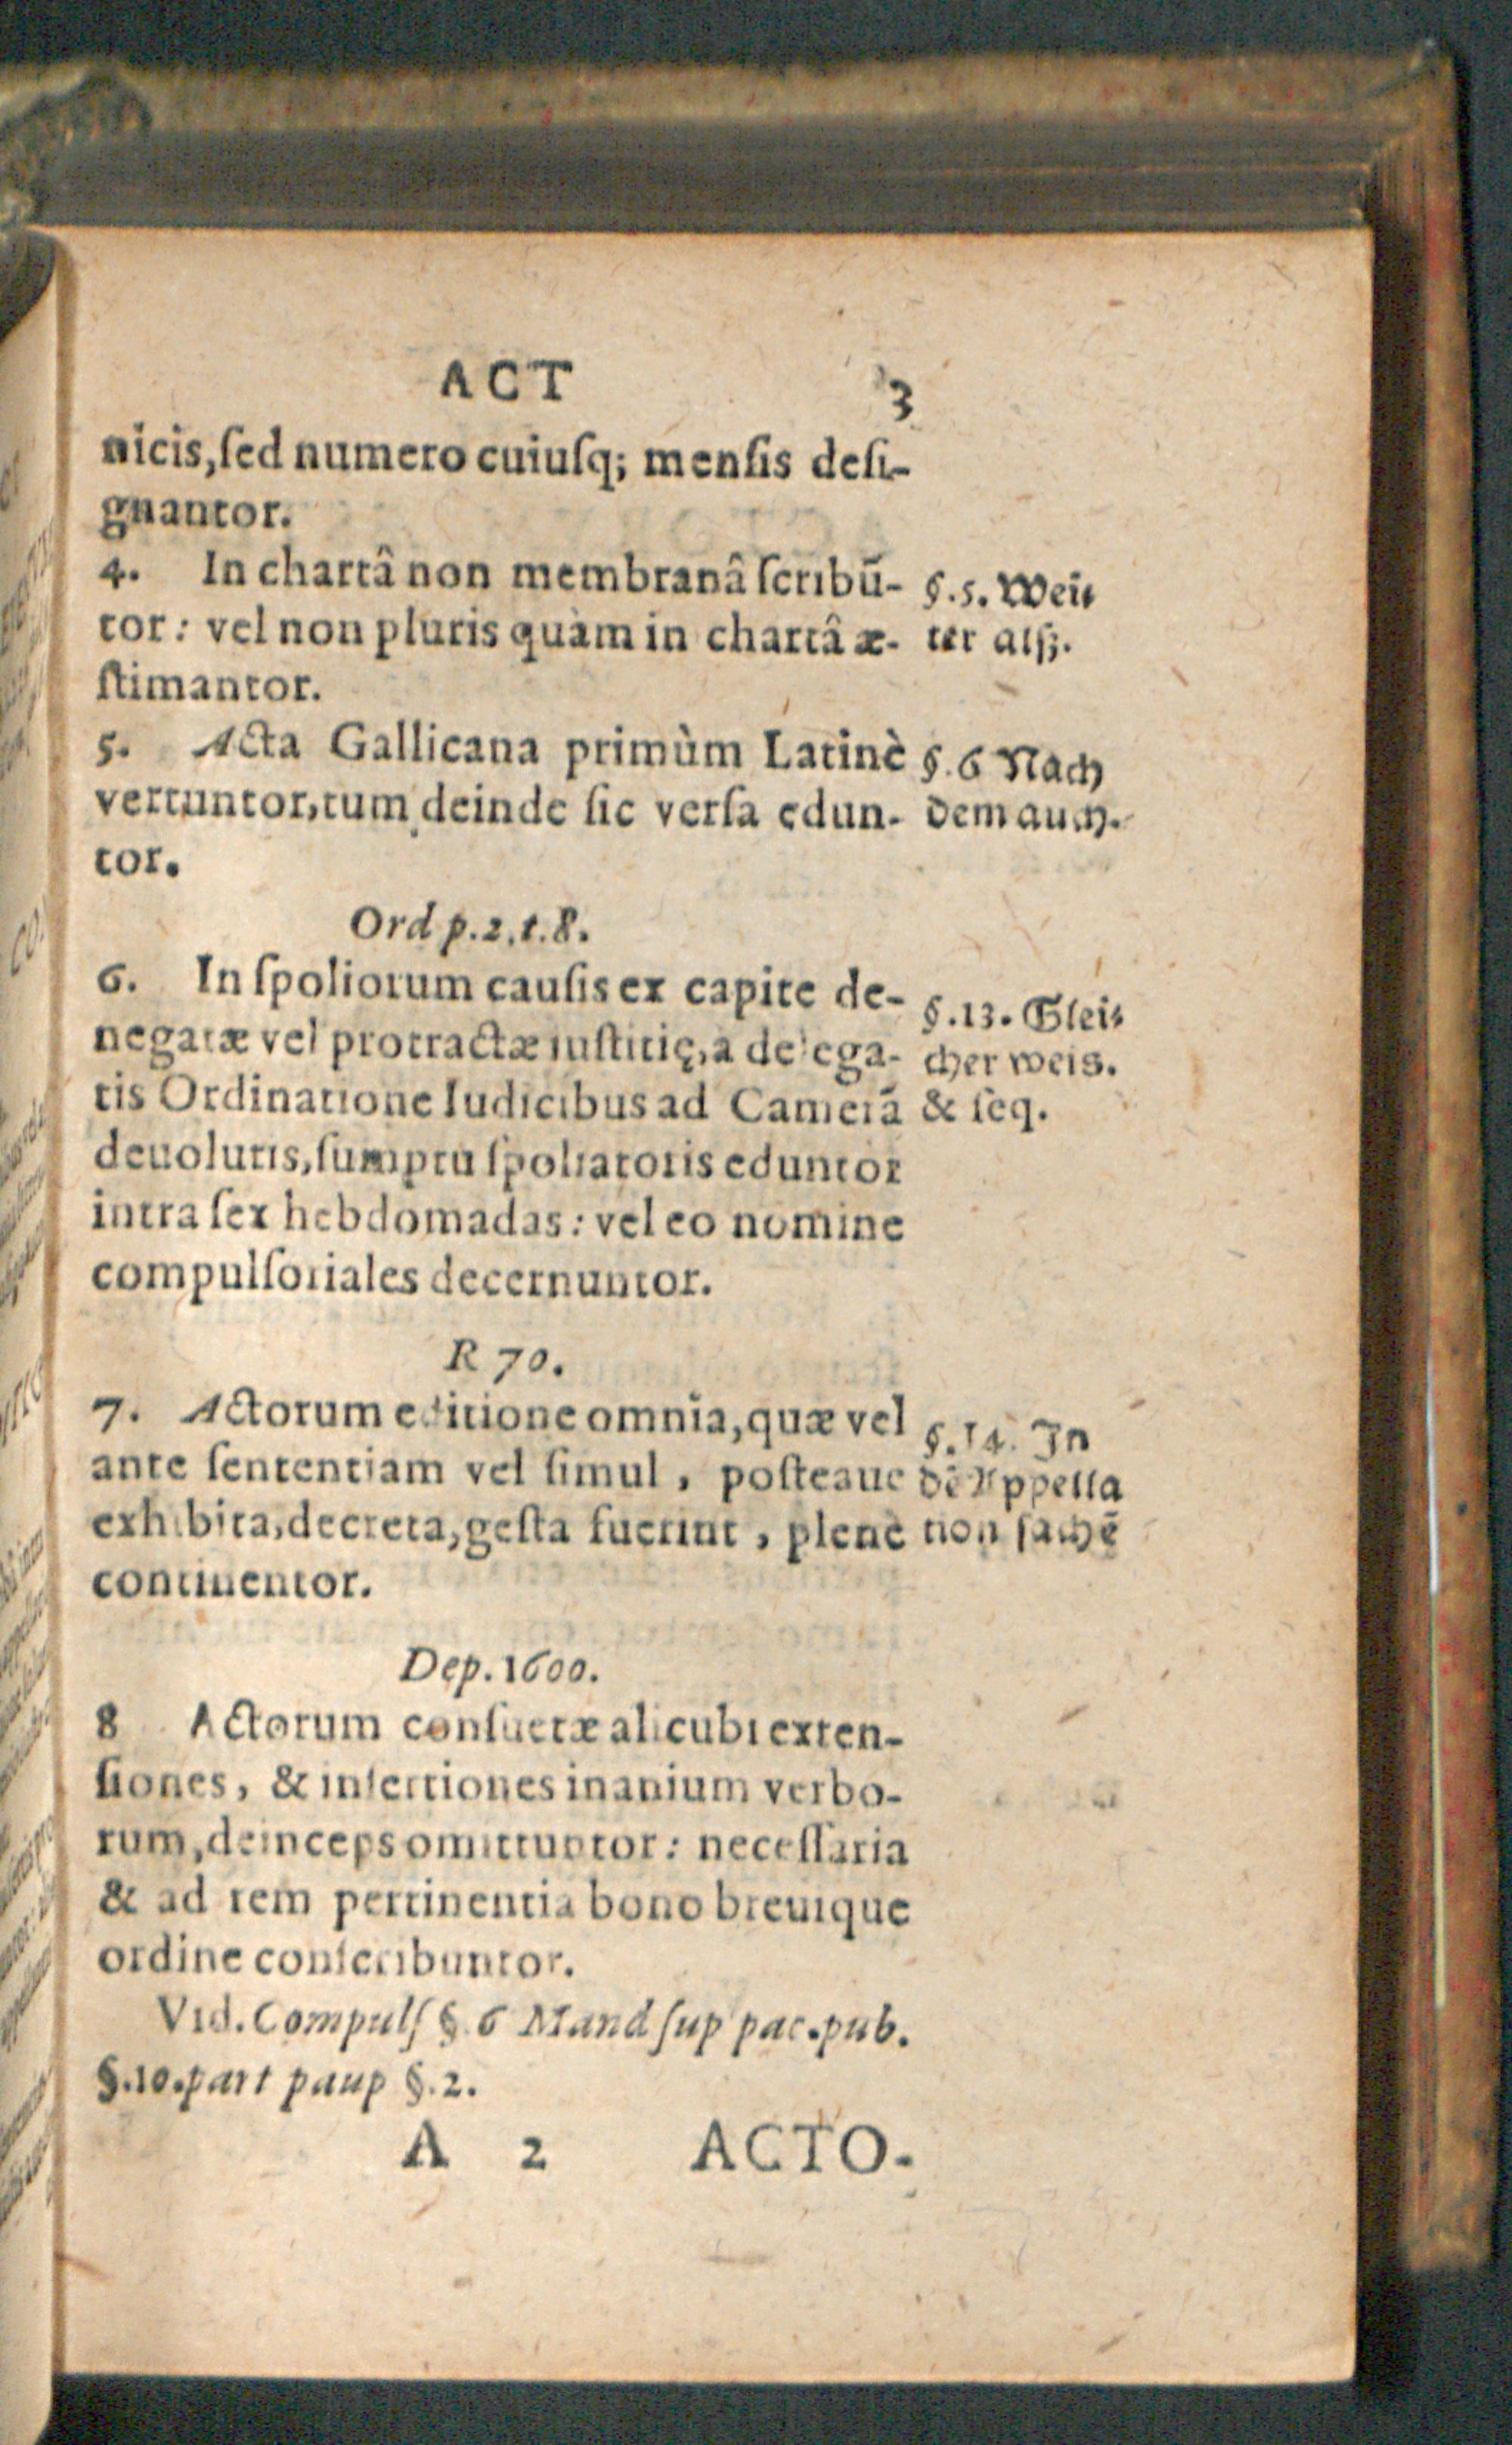 ACT 3
nicis,ſed numero cuiuſq; menſis deſi-
gnantor.
4. In chartâ non membranâ ſcribū-
tor: vel non pluris quàm in chartâ æ-
ſtimantor.
§.5. Weit
ter alſz.
5. Acta Gallicana primùm Latinè
vertuntor,tum deinde ſic verſa edun-
tor.
§.6 Nach
dem auch.
Ord p.2.t.8.
6. In ſpoliorum cauſis ex capite de-
negatæ vel protractæ iuſtitię,a delega-
tis Ordinatione Iudicibus ad Camerā
deuolutis,ſumptu ſpoliatoris eduntor
intra ſex hebdomadas: vel eo nomine
compulſoriales decernuntor.
§.13. Glei⸗
cher weis.
& ſeq.
R 70.
7. Actorum editione omnia,quæ vel
ante ſententiam vel ſimul, poſteaue
exhibita,decreta,geſta fuerint, plenè
continentor.
§.14. In
dē Appella
tion ſachē
Dep.1600.
8 Actorum conſuetæ alicubi exten-
ſiones, & inſertiones inanium verbo-
rum,deinceps omittuntor: neceſſaria
& ad rem pertinentia bono breuique
ordine conſcribuntor.
Vid.Compulſ §.6 Mand ſup pac.pub.
§.10.part paup §.2.
A 2 ACTO-